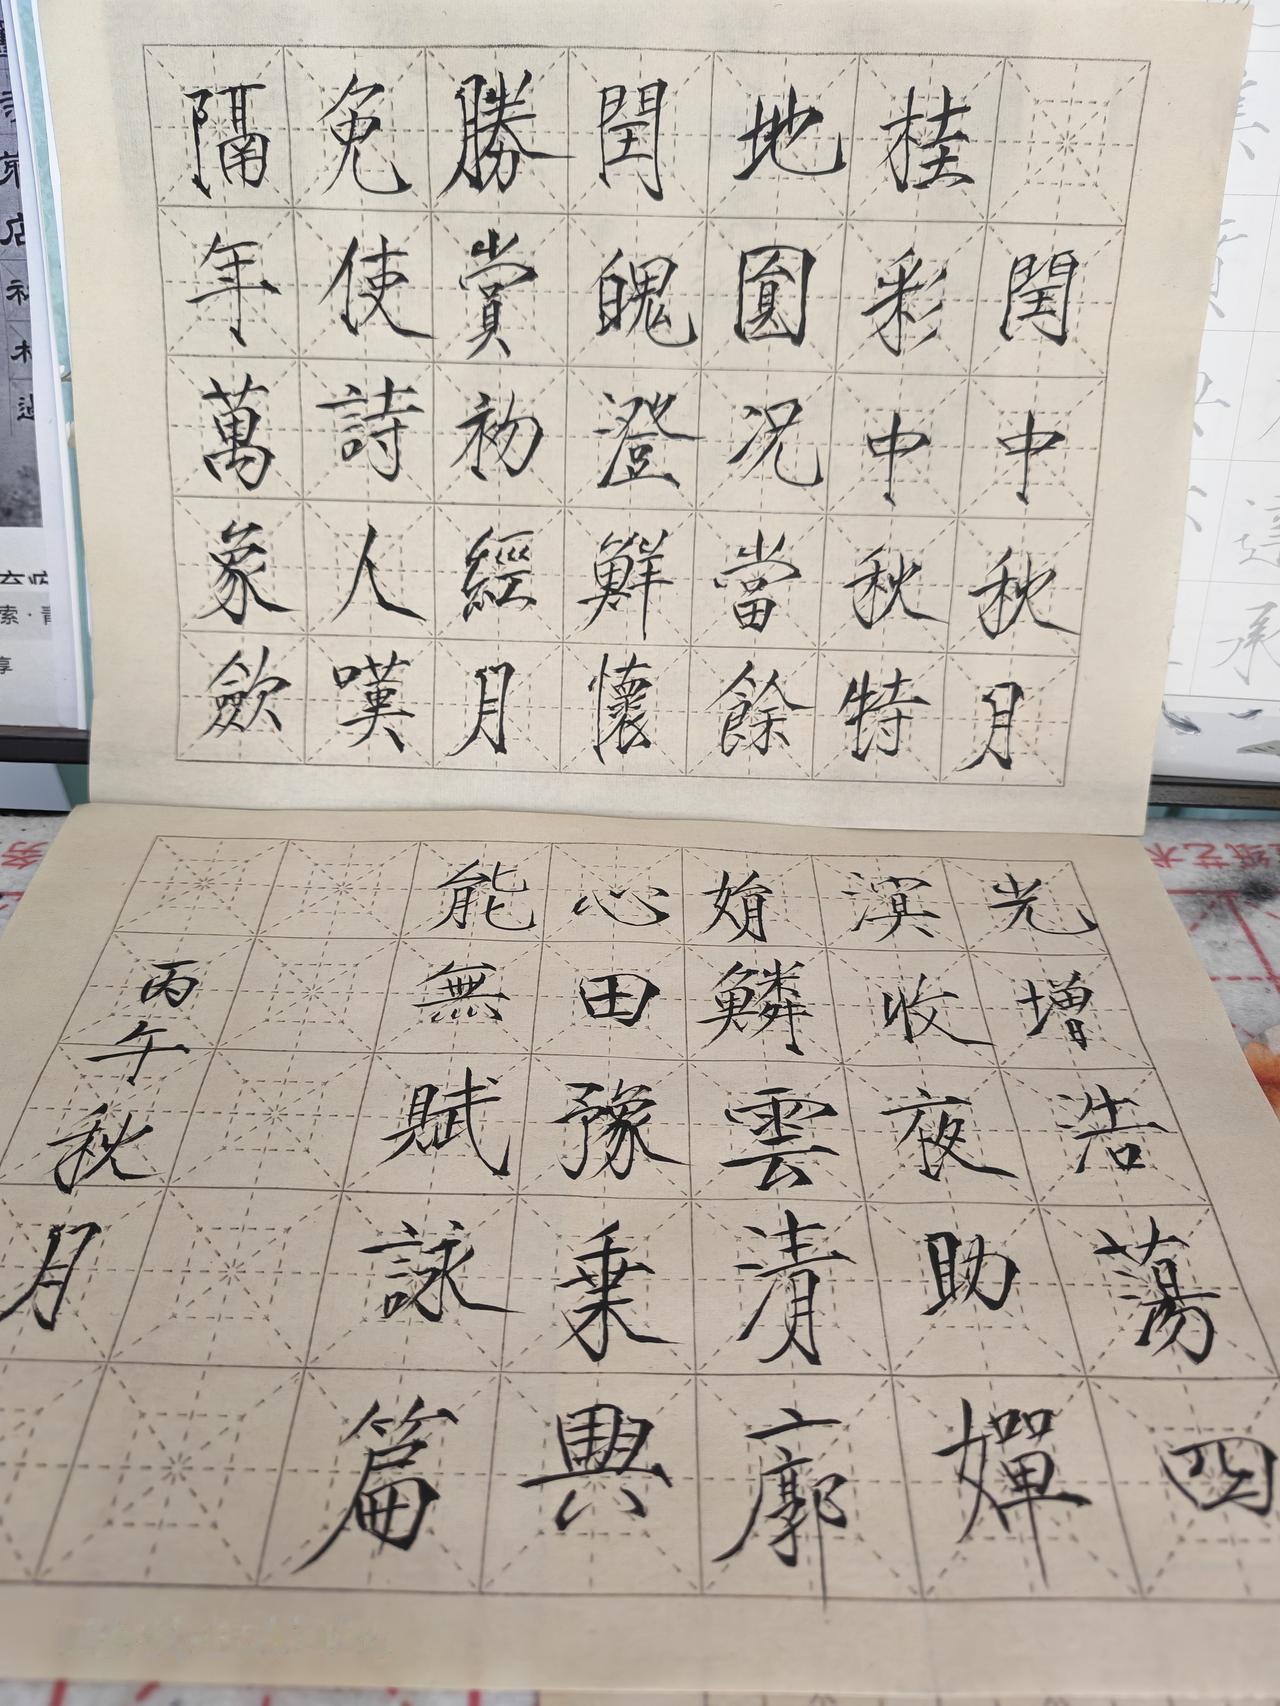 閏中秋月
桂彩中秋特
地圓况當餘
閏魄澄鮮懷
勝賞初經月
免使詩人嘆
隔年萬象歛
光增浩蕩四
溟收夜助嬋
娟鱗雲清廓
心田豫乗興
能無賦詠篇
丙午秋月